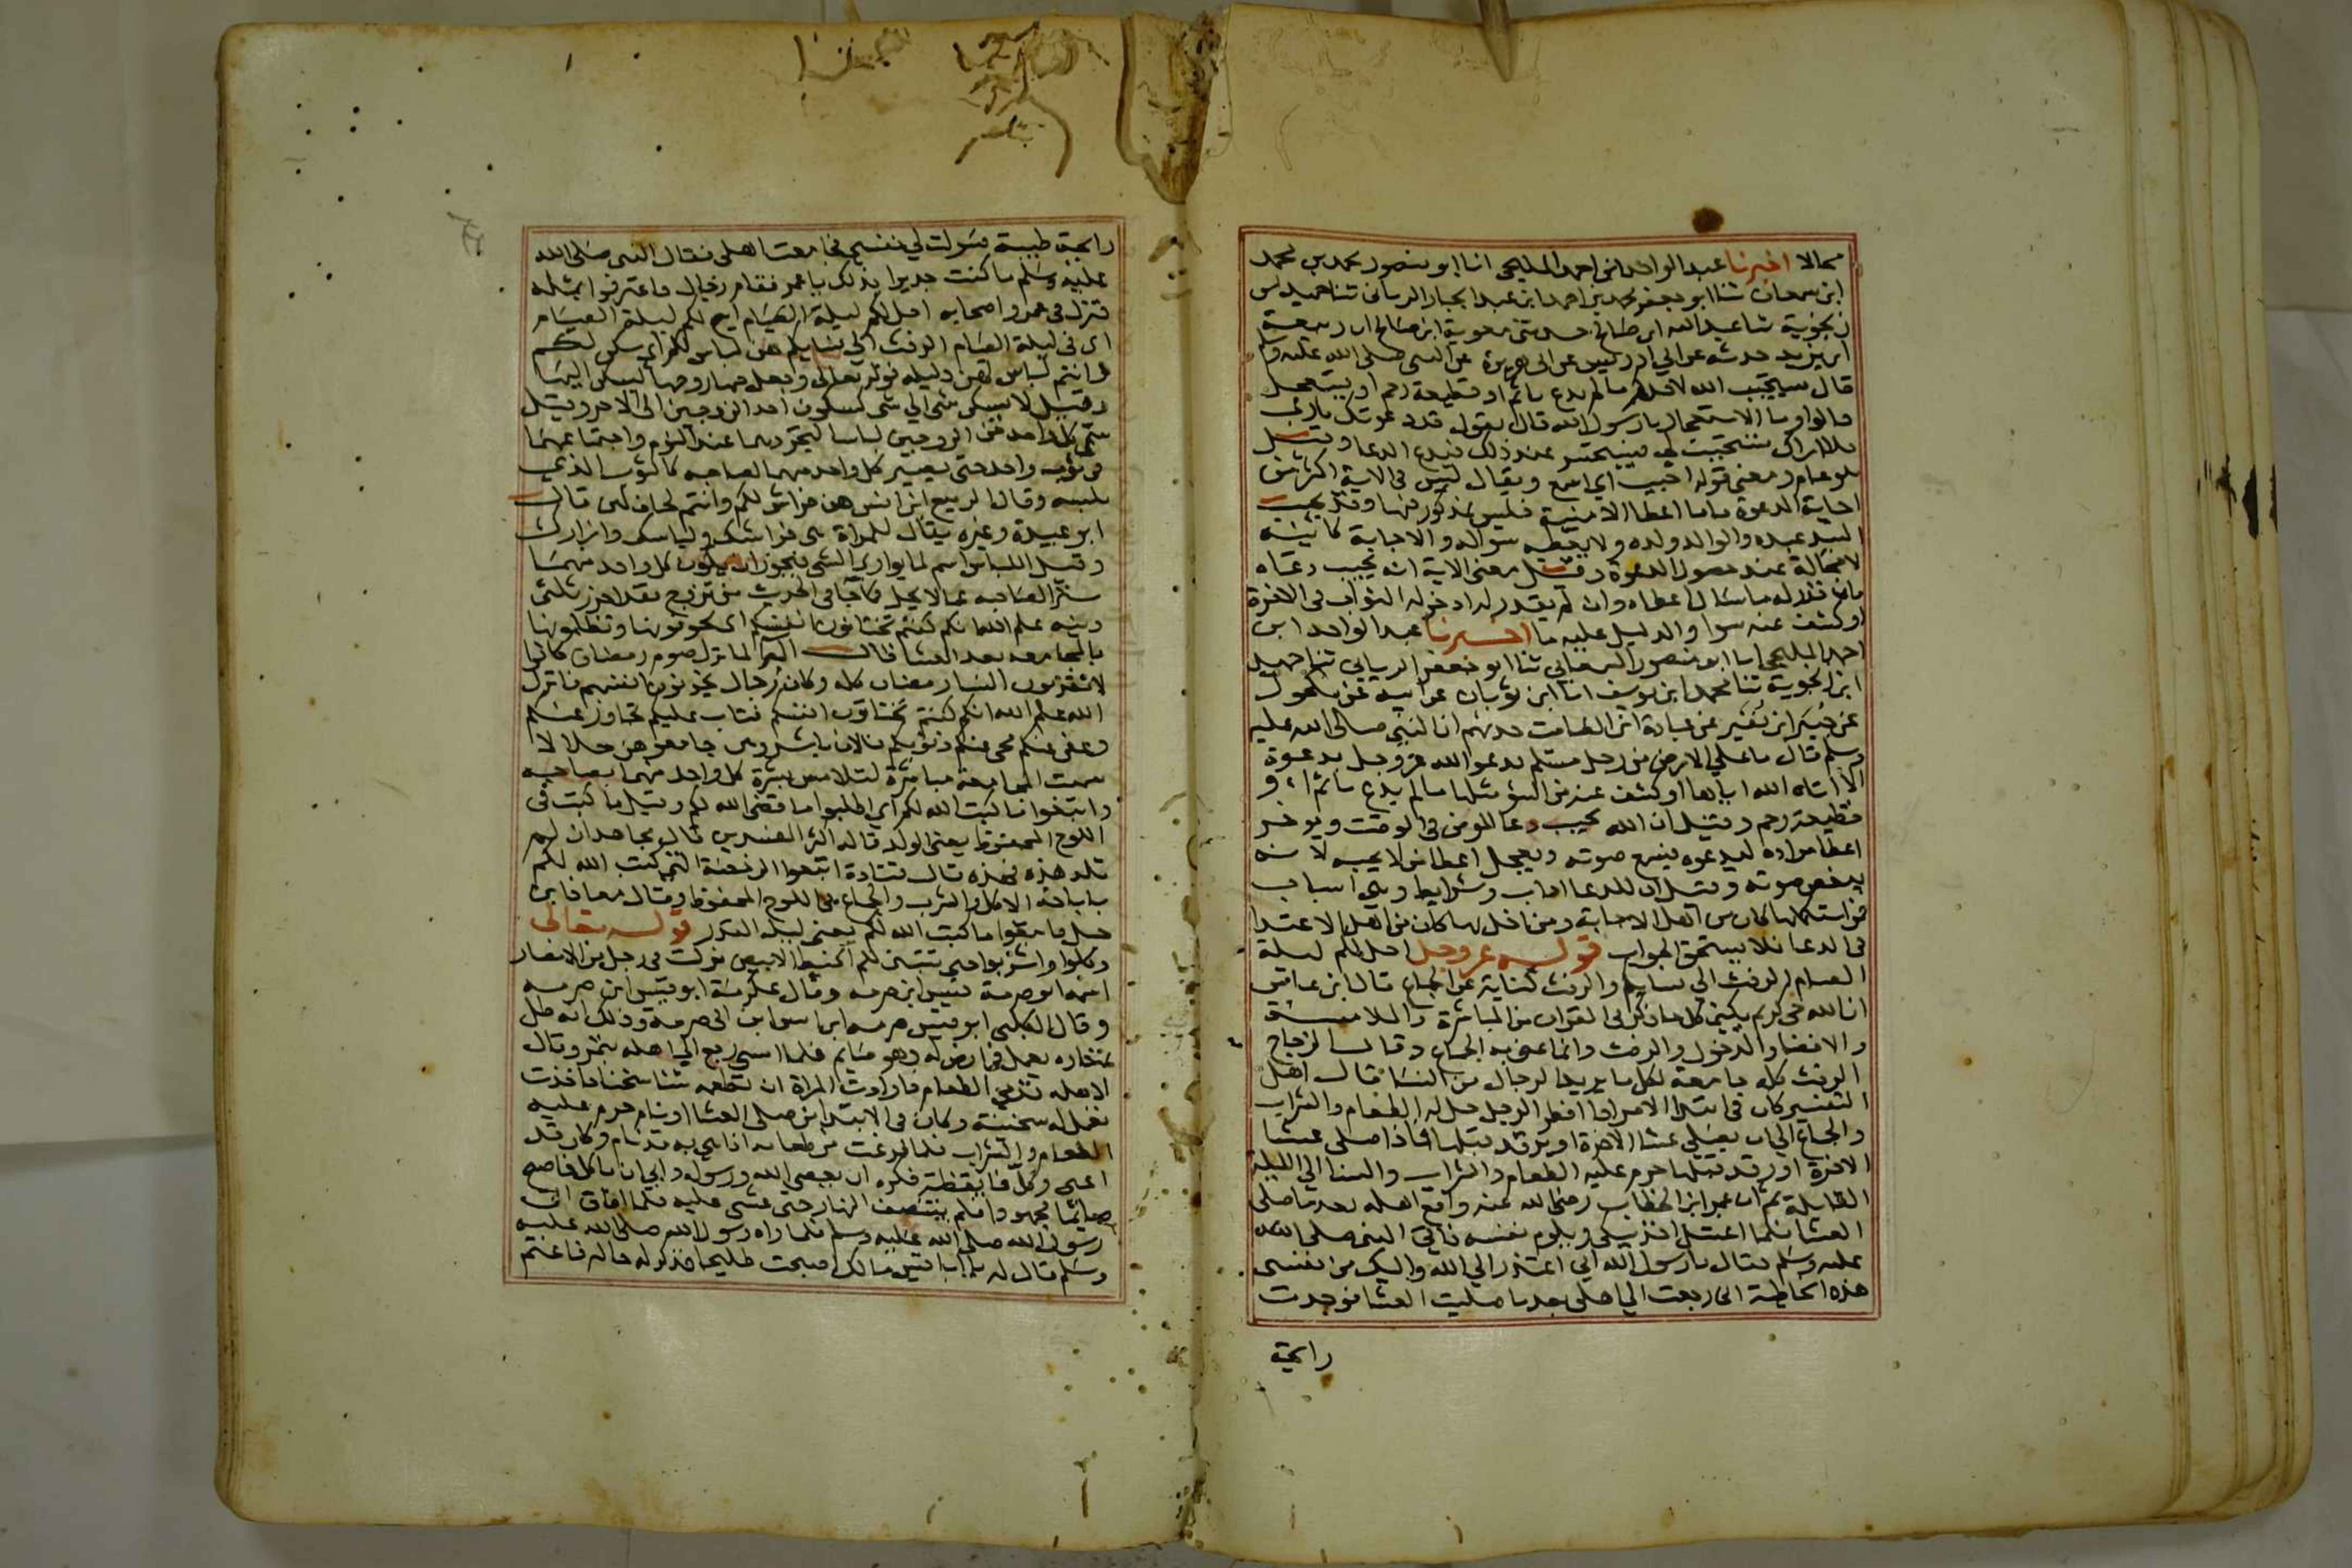 محالا اخبرنا عبد الواحد ابن احمد المليحي انا ابو منصور محمد بن محمد
ابن سمعان ثنا ابو جعفر محمد بن احمد ابن عبد الجبار الرياني ثنا حميد بن
زنجوية ثنا عبد الله ابن صالح حدثني معوية ابن صالح ان ربيعة
ابن يزيد حدثه عن ابي ادريس عن ابي هريرة عن النبي صلى الله عليه وسلم
قال يستجيب الله لاحدكم ما لم يدع باثم او قطيعة رحم او يستعجل
قالوا وما الاستعجال يا رسول الله قال يقول قد دعوتك يا رب
فلا اراك تستجيب لي فيستحسر عند ذلك فيدع الدعا وقيل
هو عام ومعنى قوله اجيب اي اسمع ويقال ليس في الاية اكثر من
اجابة الدعوة فاما اعطا الامنية فليس بمذكور فيها وقد يجيب
السيد عبده والوالد ولده ولا يعطيه سواله والاجابة كائنة
لا محالة عند حصول الدعوة وقيل معنى الاية انه يجيب دعاه
فان قدر له ما سال اعطاه وان لم يقدر له ادخر له الثواب في الاخرة
او كشف عنه سوا والدليل عليه ما اخبرنا عبد الواحد ابن
احمد المليحي انا ابو منصور السمعاني ثنا ابو جعفر الرياني ثنا حميد
ابن زنجوية ثنا محمد ابن يوسف انا ابن ثوبان عن ابيه عن مكحول
عن جبير ابن نفير عن عبادة ابن الصامت حدثهم ان النبي صلى الله عليه
وسلم قال ما على الارض من رجل مسلم يدعو الله عز وجل بدعوة
الا اتاه الله اياها او كشف عنه من السؤ مثلها ما لم يدع باثم او
قطيعة رحم وقيل ان الله يجيب دعا المومن في الوقت ويوخر
اعطا مراده ليدعوه فيسمع صوته ويعجل اعطا من لا يحبه لانه
يبغض صوته وقيل ان للدعا اداب وشرايط وهي اسباب
فمن استكملها كان من اهل الاجابة ومن اخل بها كان من اهل الاعتدا
في الدعا فلا يستحق الجواب قوله عز وجل احل لكم ليلة
الصيام الرفث الى نسايكم والرفث كناية عن الجماع قال ابن عباس
ان الله حي كريم يكني كل ما ذكر في القران من المباشرة والملامسة
والافضا والدخول والرفث وانما عنى به الجماع وقال الزجاج
الرفث كلمة جامعة لكل ما يريد الرجال من النسا قال اهل
التفسير كان في ابتدا الامر اذا افطر الرجل حل له الطعام والشراب
والجماع الى ان يصلي عشا الاخرة او يرقد قبلها فاذا صلى عشا
الاخرة او رقد قبلها حرم عليه الطعام والشراب والنسا الى الليلة
القابلة ثم ان عمر ابن الخطاب رضي الله عنه واقع اهله بعد ما صلى
العشا فلما اغتسل اخذ يبكي ويلوم نفسه فاتى النبي صلى الله
عليه وسلم فقال يا رسول الله اني اعتذر الى الله واليك من نفسي
هذه الخاطئة اني رجعت الى اهلي بعد ما صليت العشا فوجدت
رايحة
رايحة طيبة فسولت لي نفسي فجامعت اهلي فقال النبي صلى الله
عليه وسلم ما كنت جديرا بذلك يا عمر فقام رجال فاعترفوا بمثله
فنزل في عمر واصحابه احل لكم ليلة الصيام ابيح لكم ليلة الصيام
اي في ليلة الصيام الرفث الى نسايكم هن لباس لكم اي سكن لكم
وانتم لباس لهن دليله قوله تعالى وجعل منها زوجها ليسكن اليها
وقيل لا يسكن شي الى شي كسكون احد الزوجين الى الاخر وقيل
سمي كل واحد من الزوجين لباسا لتجردهما عند النوم واجتماعهما
في ثوب واحد حتى يصير كل واحد منهما لصاحبه كالثوب الذي
يلبسه وقال الربيع ابن انس هن فراش لكم وانتم لحاف لهن قال
ابو عبيدة وغيره يقال للمراة هي فراشك ولباسك وازارك
وقيل اللباس اسم لما يواري الشي فيجوز ان يكون كل واحد منهما
سترا لصاحبه عما لا يحل كما جا في الحديث من تزوج فقد احرز ثلثي
دينه علم الله انكم كنتم تختانون انفسكم اي تخونونها وتظلمونها
بالمجامعة بعد العشا قال البرا لما نزل صوم رمضان كانوا
لا يقربون النسا رمضان كله وكان رجال يخونون انفسهم فانزل
الله علم الله انكم كنتم تختانون انفسكم فتاب عليكم تجاوز عنكم
وعفى عنكم محى عنكم ذنوبكم فالان باشروهن جامعوهن حلالا
سميت المجامعة مباشرة لتلامس بشرة كل واحد منهما بصاحبه
وابتغوا ما كتب الله لكم اي اطلبوا ما قضى الله لكم وقيل ما كتب في
اللوح المحفوظ يعني الولد قاله اكثر المفسرين قال مجاهد ان لم
تلد هذه فهذه قال قتادة ابتغوا الرخصة التي كتب الله لكم
باباحة الاكل والشرب والجماع في اللوح المحفوظ وقال معاذ ابن
جبل وابتغوا ما كتب الله لكم يعني ليلة القدر قوله تعالى
وكلوا واشربوا حتى يتبين لكم الخيط الابيض نزلت في رجل من الانصار
اسمه ابو صرمة قيس ابن صرمه وقال عكرمة ابو قيس ابن صرمه
وقال الكلبي ابو قيس صرمه ابن انس ابن ابي صرمة وذلك انه ظل
نهاره يعمل في ارض له وهو صايم فلما امسى رجع الى اهله بتمر وقال
لاهله قدمي الطعام فارادت المراة ان تطعمه شيا سخنا فاخذت
تعمل له سخينة وكان في الابتدا من صلى العشا او نام حرم عليه
الطعام والشراب فلما فرغت من طعامه اذا هي به قد نام وكان قد
اعيى وكل فايقظته فكره ان يعصي الله ورسوله وابى ان ياكل فاصبح
صايما مجهودا فلم ينتصف النهار حتى غشي عليه فلما افاق اتى
رسول الله صلى الله عليه وسلم فلما راه رسول الله صلى الله عليه
وسلم قال له يا ابا قيس مالك اصبحت طليحا فذكر له حاله فاغتم